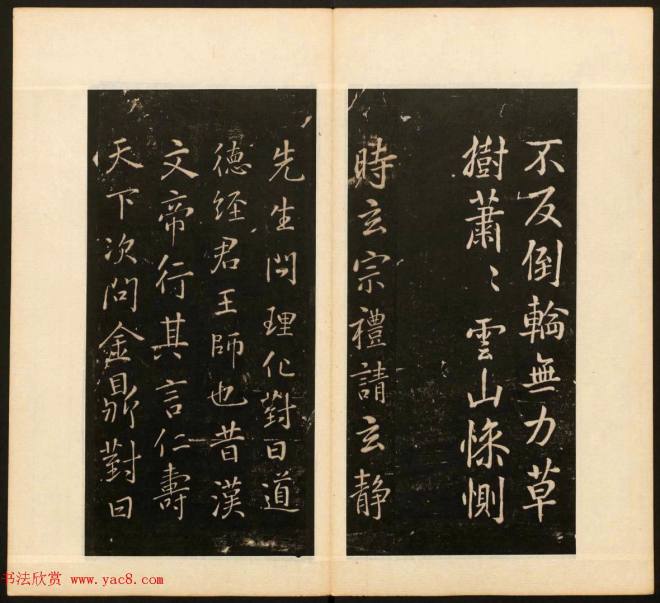 不反倒輪無力草
樹蕭〻雲山悽惻
時玄宗禮請玄静
先生問理化對曰道
德經君王師也昔漢
文帝行其言仁壽
天下次問金鼎對曰
书法欣赏 www.yac8.com